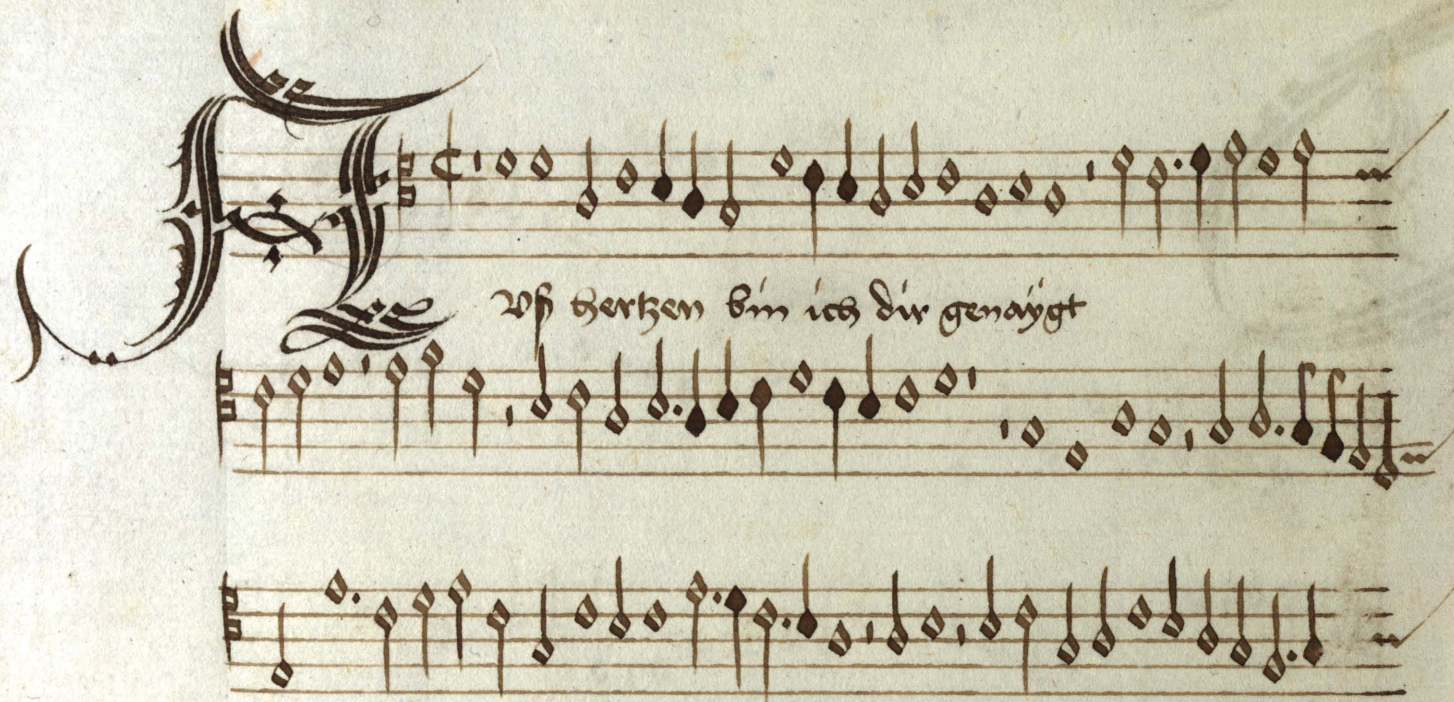 A
Vß hertzen bin ich dir genaÿgt